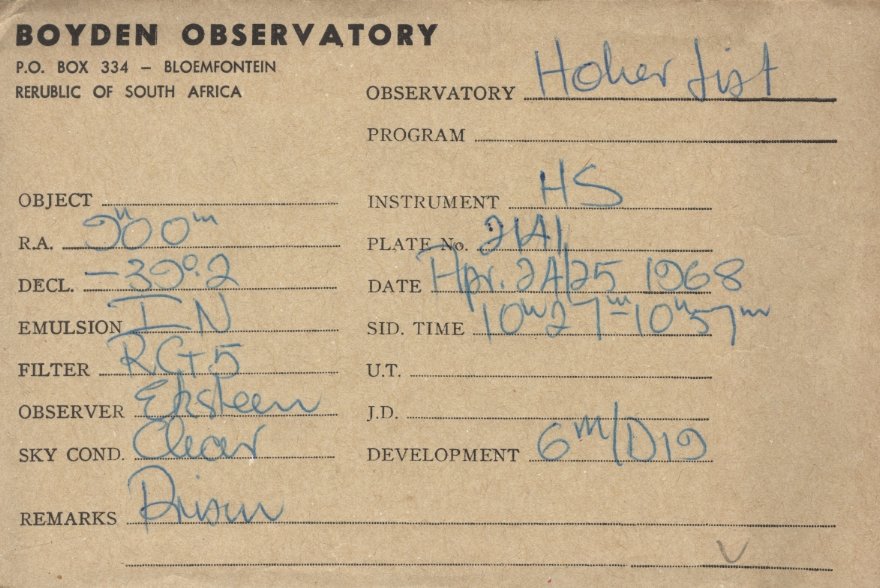 BOYDEN OBSERVATORY
P.O. BOX 334 – BLOEMFONTEIN
RERUBLIC OF SOUTH AFRICA
OBSERVATORY Hoher List
PROGRAM
OBJECT
INSTRUMENT HS
R.A. 9h00m
PLATE No. 2141
DECL. -39°.2
DATE Apr. 24/25 1968
EMULSION I-N
SID. TIME 10h27m-10h57m
FILTER RG+5
U.T.
OBSERVER Eksteen
J.D.
SKY COND. Clear
DEVELOPMENT 6m/D19
REMARKS Prism